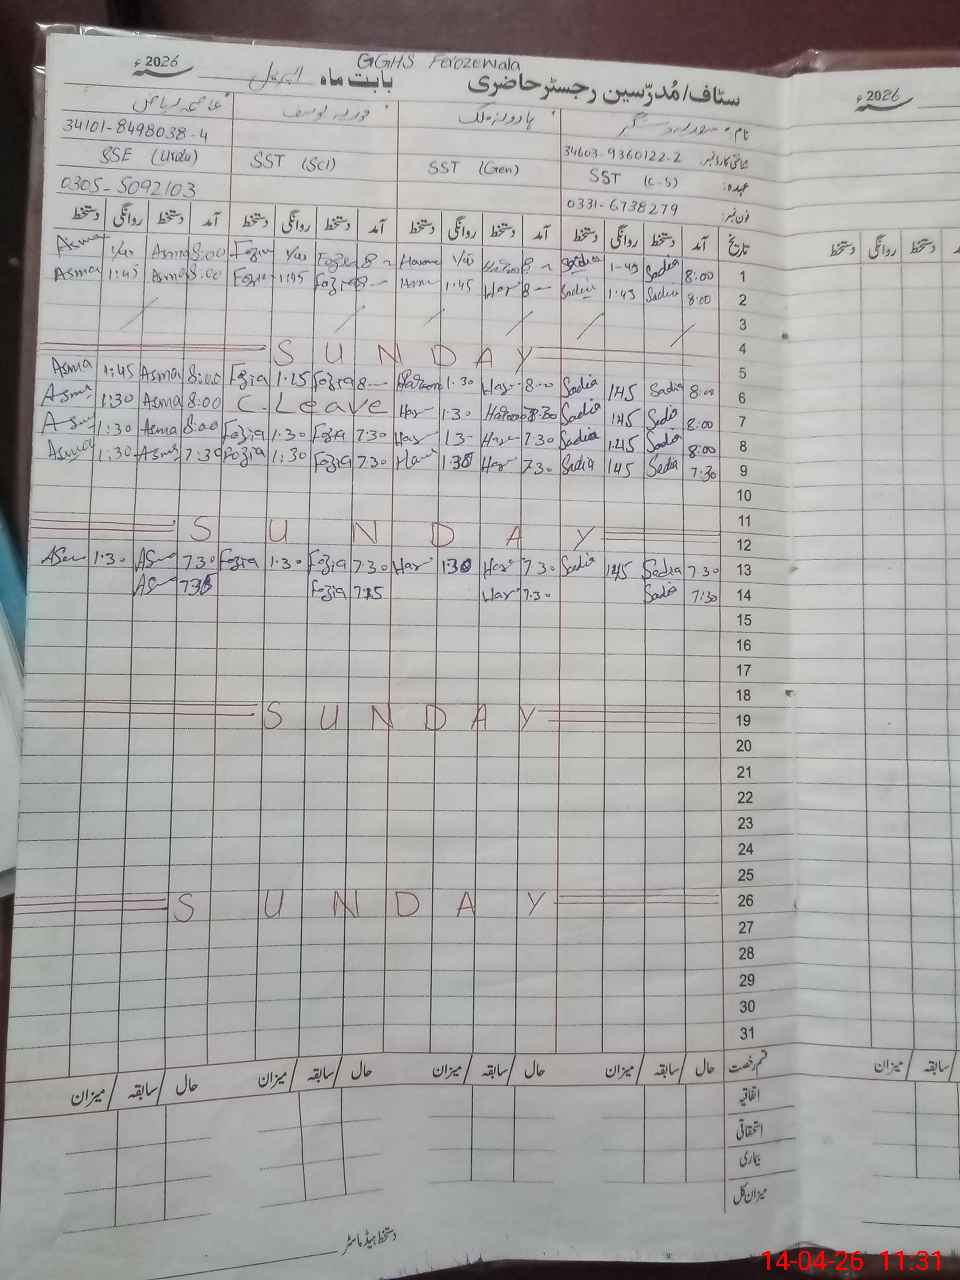 GGHS Ferozewala
سٹاف/مُدرّسین رجسٹر حاضری بابت ماہ اپریل سنہ 2026ء
سنہ 2026ء
نام:
34101-8498038-4
شناختی کارڈ نمبر 34603-9360122-2
SSE (Urdu) SST (Sci) SST (Gen) SST (C-S) عہدہ:
0305-5092103 0331-6738279 فون نمبر:
تاریخ آمد دستخط روانگی دستخط آمد دستخط روانگی دستخط آمد دستخط روانگی دستخط آمد دستخط روانگی دستخط
دستخط روانگی دستخط
Asma 1/40 Asma 8:00 Fozia 1/40 Fozia 8 1/40 8 Sadia 1-45 Sadia 8:00 1
Asma 1:45 Asma 8:00 Fozia 1:45 Fozia 8 1:45 Har 8 Sadia 1:45 Sadia 8:00 2
3
SUNDAY 4
Asma 1:45 Asma 8:00 Fozia 1:15 Fozia 8 Haroon 1.30 Har 8 Sadia 1:45 Sadia 8:00 5
Asma 1:30 Asma 8:00 C.Leave Har 1.30 Haroon 8:30 Sadia 1:45 Sadia 8:00 6
Asma 1:30 Asma 8:00 Fozia 1:30 Fozia 7.30 Har 1.3 Har 7.30 Sadia 1:45 Sadia 8:00 7
Asma 1:30 Asma 7:30 Fozia 1:30 Fozia 7.30 Har 1.30 Har 7.30 Sadia 1:45 Sadia 7:30 8
9
10
11
SUNDAY 12
Asma 1.30 Asma 7.30 Fozia 1.30 Fozia 7.30 Har 1.30 Har 7.30 Sadia 1:45 Sadia 7.30 13
Asma 7.30 Fozia 7:15 Har 7.30 Sadia 7:30 14
15
16
17
18
SUNDAY 19
20
21
22
23
24
25
SUNDAY 26
27
28
29
30
31
قسم رخصت حال / سابقہ / میزان حال / سابقہ / میزان حال / سابقہ / میزان حال / سابقہ / میزان
سابقہ / میزان
اتفاقیہ
استحقاقی
بیماری
میزان کل
دستخط ہیڈ ماسٹر
14-04-26 11:31